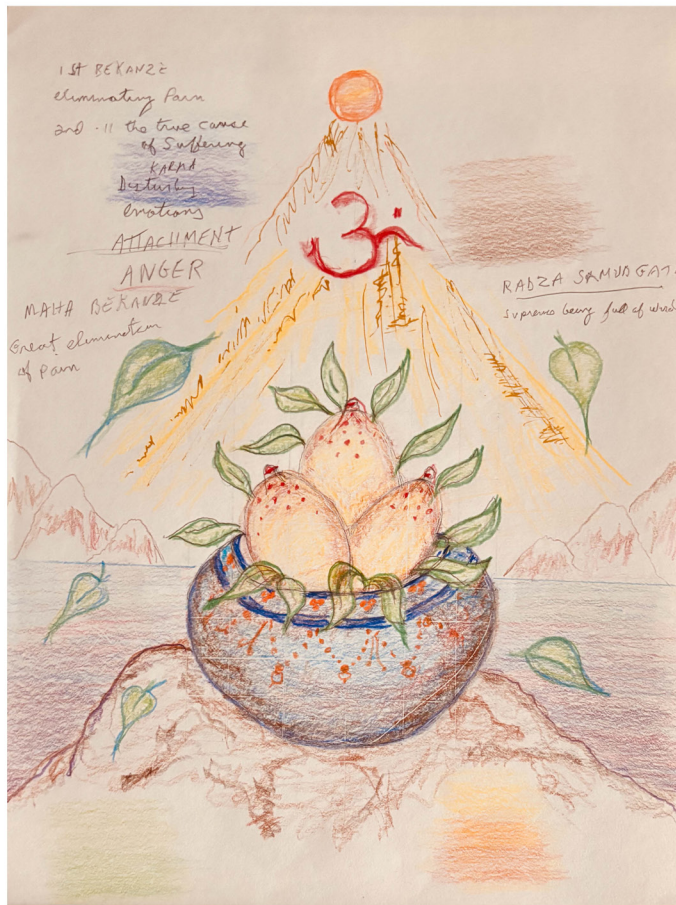 1ST BEKANZE
eliminating Pain
2nd -11 the true cause
of Suffering
KARMA
Disturbing
emotions
ATTACHMENT
ANGER
MAHA BEKANZE
Great elimination
of Pain
RADZA SAMUDGAT
supreme being full of